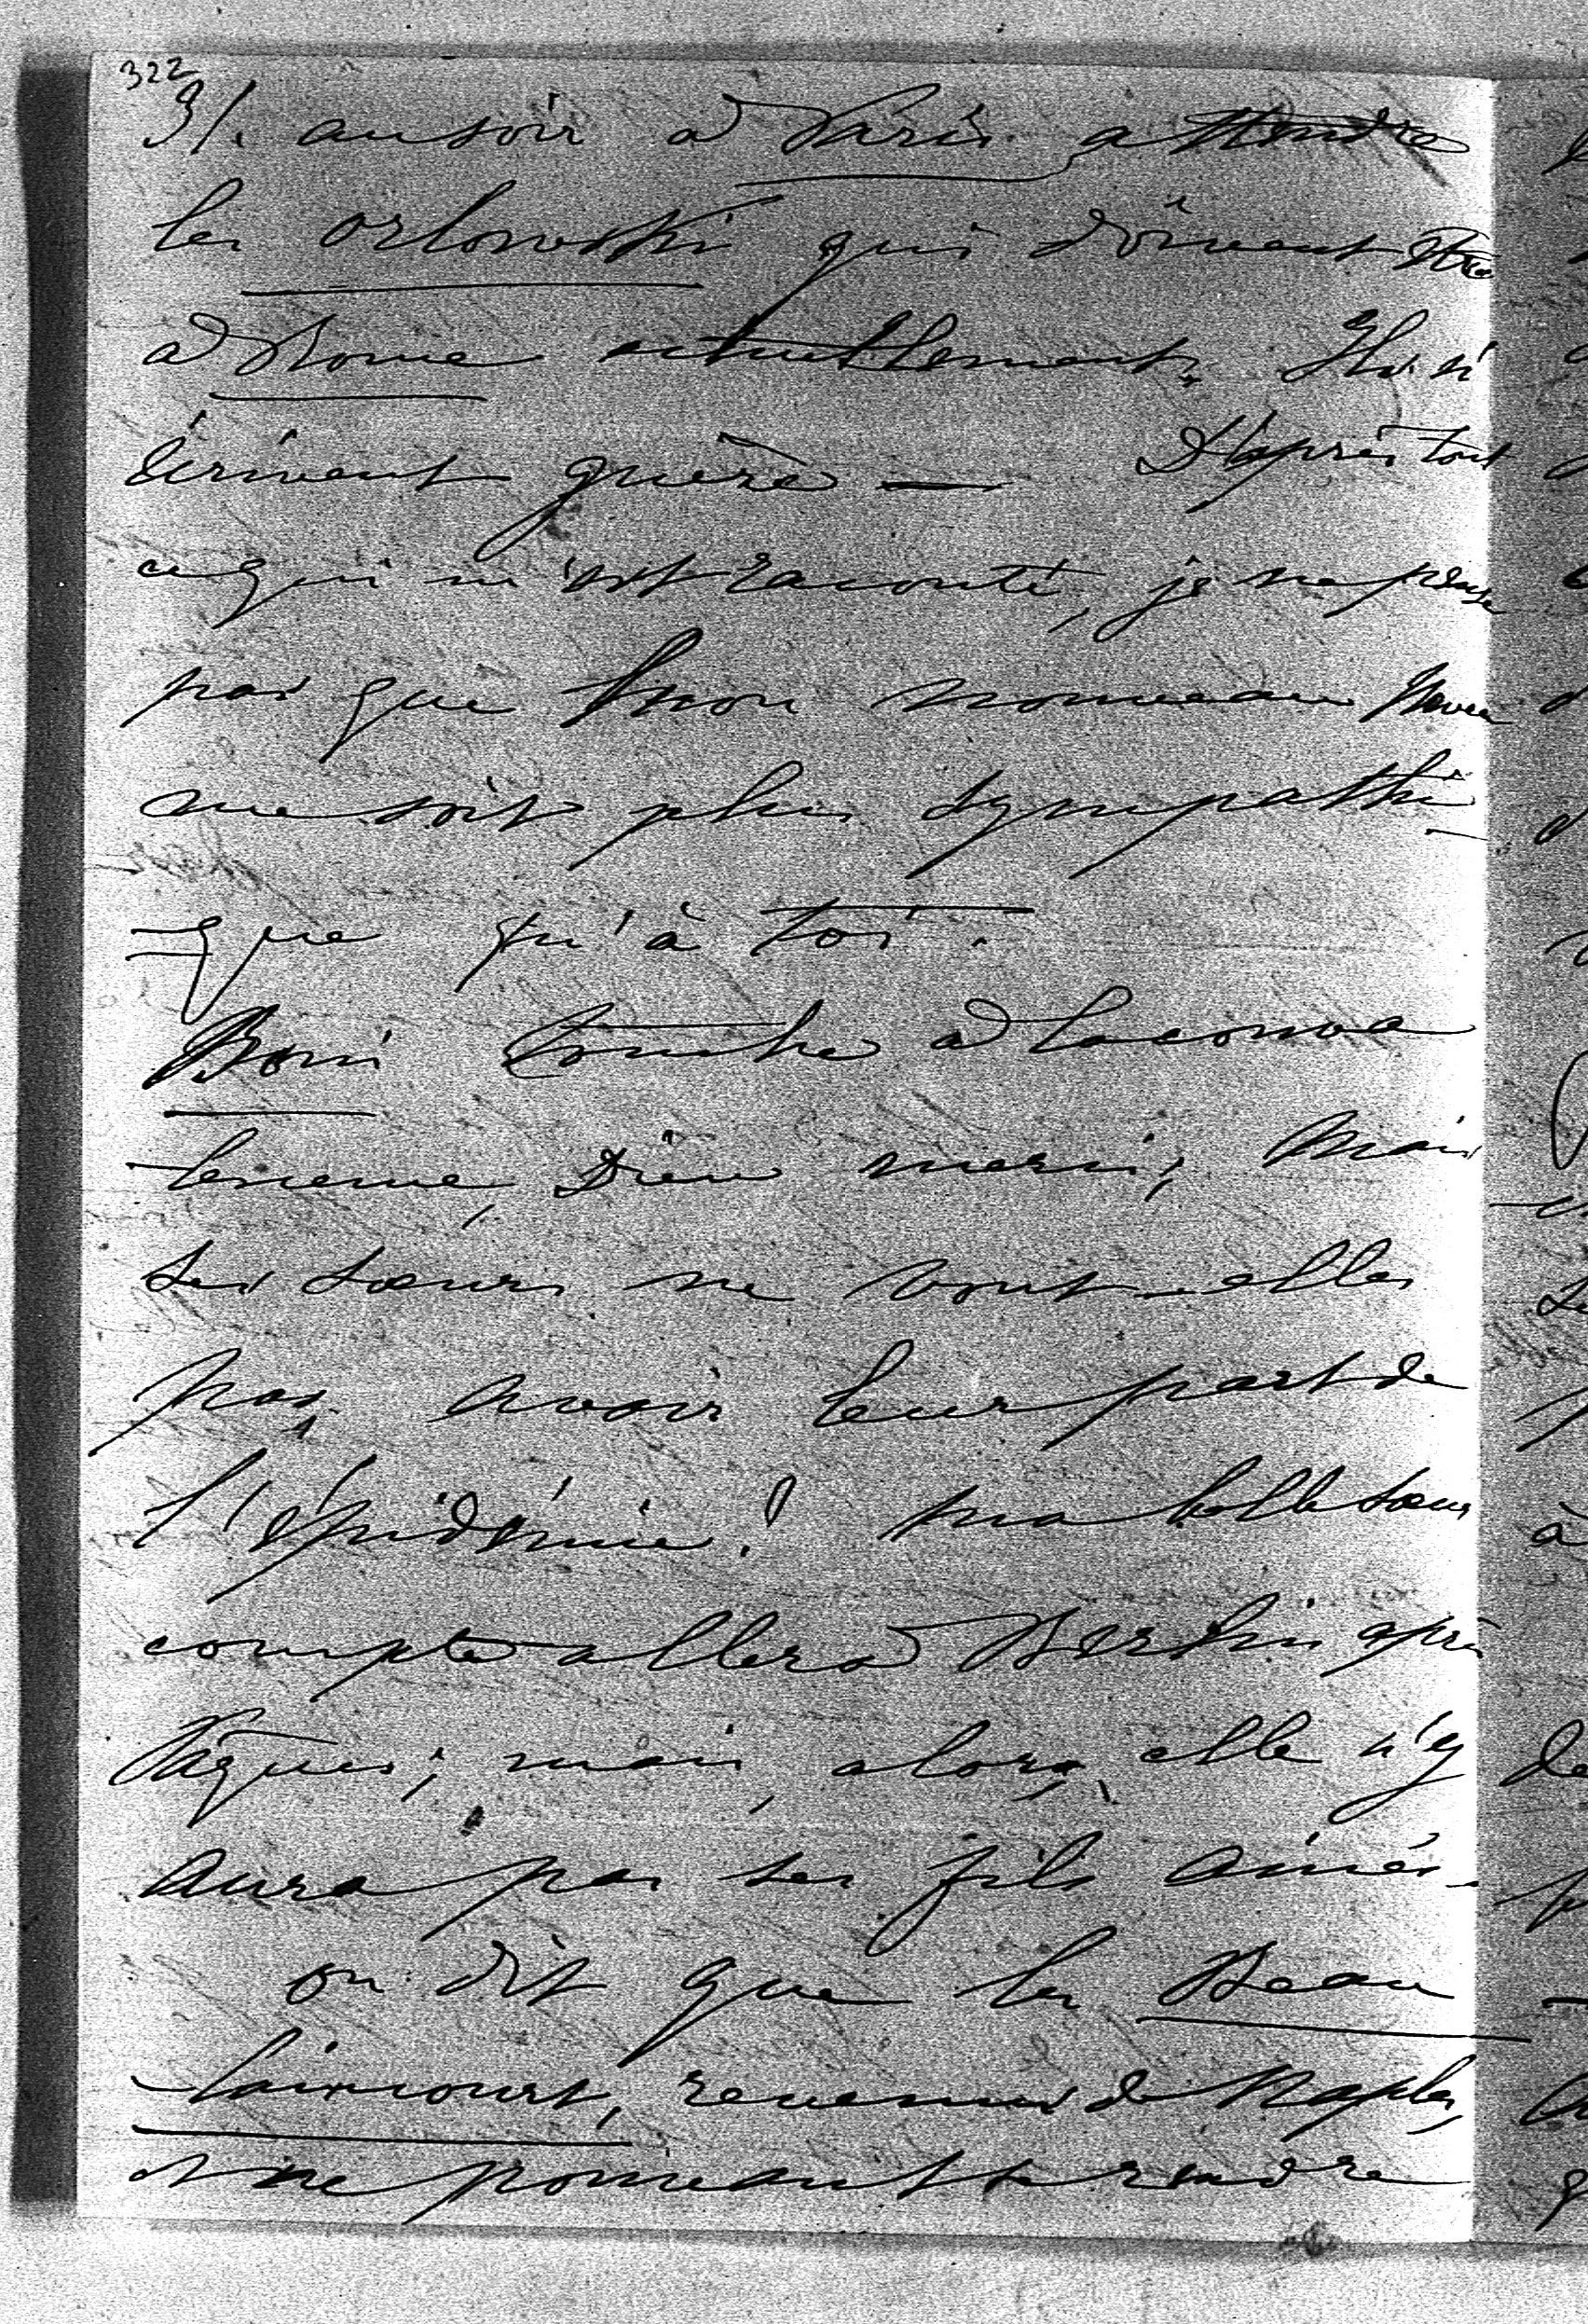 322
3/. au soir à Paris attendre
les Orlowski qui doivent être
à Rome actuellement. Ils n'
écrivent guère — D'après tout
ce qui m'est raconté, je ne pense
pas que mon nouveau neveu
me soit plus sympathi-
-que qu'à toi.
Boni touche à la conva
-lescence, Dieu merci; mais
ses sœurs ne vont-elles
pas avoir leur part de
l'épidémie! Ma belle sœur
compte aller à Berlin après
Pâques; mais, alors, elle n'y
aura pas ses fils aînés.
on dit que les Beau
-laincourt, revenus de Naples,
et ne pouvant se rendre